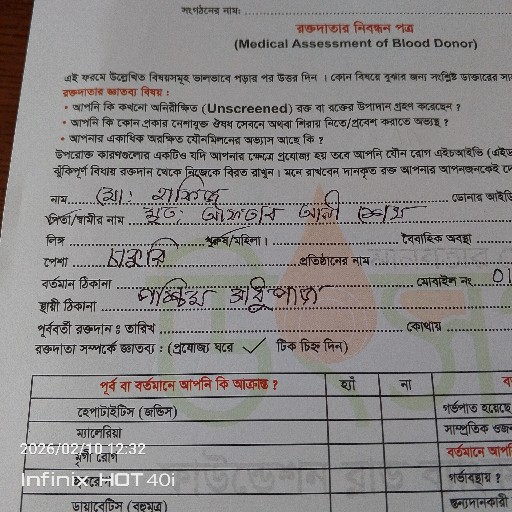 সংগঠনের নাম:
রক্তদাতার নিবন্ধন পত্র
(Medical Assessment of Blood Donor)
এই ফরমে উল্লেখিত বিষয়সমূহ ভালভাবে পড়ার পর উত্তর দিন । কোন বিষয়ে বুঝার জন্য সংশ্লিষ্ট ডাক্তারের
রক্তদাতার জ্ঞাতব্য বিষয় :
• আপনি কি কখনো অনিরীক্ষিত (Unscreened) রক্ত বা রক্তের উপাদান গ্রহণ করেছেন ?
• আপনি কি কোন প্রকার নেশাযুক্ত ঔষধ সেবনে অথবা শিরায় নিতে/প্রবেশ করাতে অভ্যস্থ ?
• আপনার একাধিক অরক্ষিত যৌনমিলনের অভ্যাস আছে কি ?
উপরোক্ত কারণগুলোর একটিও যদি আপনার ক্ষেত্রে প্রযোজ্য হয় তবে আপনি যৌন রোগ এইচআইভি
ঝুঁকিপূর্ণ বিধায় রক্তদান থেকে নিজেকে বিরত রাখুন । মনে রাখবেন দানকৃত রক্ত আপনার আপনজনকেই
নাম মো: রফিকুল ডোনার আইডি
পিতা/স্বামীর নাম মৃত: আফতাব আলী শেখ
লিঙ্গ পুরুষ/মহিলা । বৈবাহিক অবস্থা
পেশা চাকুরি প্রতিষ্ঠানের নাম
বর্তমান ঠিকানা মোবাইল নং 01
স্থায়ী ঠিকানা পশ্চিম বাবুপাড়া
পূর্ববর্তী রক্তদান ঃ তারিখ কোথায়
রক্তদাতা সম্পর্কে জ্ঞাতব্য : (প্রযোজ্য ঘরে ✓ টিক চিহ্ন দিন)
পূর্ব বা বর্তমানে আপনি কি আক্রান্ত ? হ্যাঁ না
হেপাটাইটিস (জন্ডিস) গর্ভপাত হয়েছে
ম্যালেরিয়া সাম্প্রতিক ওজন
মৃগী রোগ বর্তমানে আপনি
গর্ভাবস্থায় ?
ডায়াবেটিস (বহুমূত্র) স্তন্যদানকারী
2026/02/10 12:32
Infinix HOT 40i